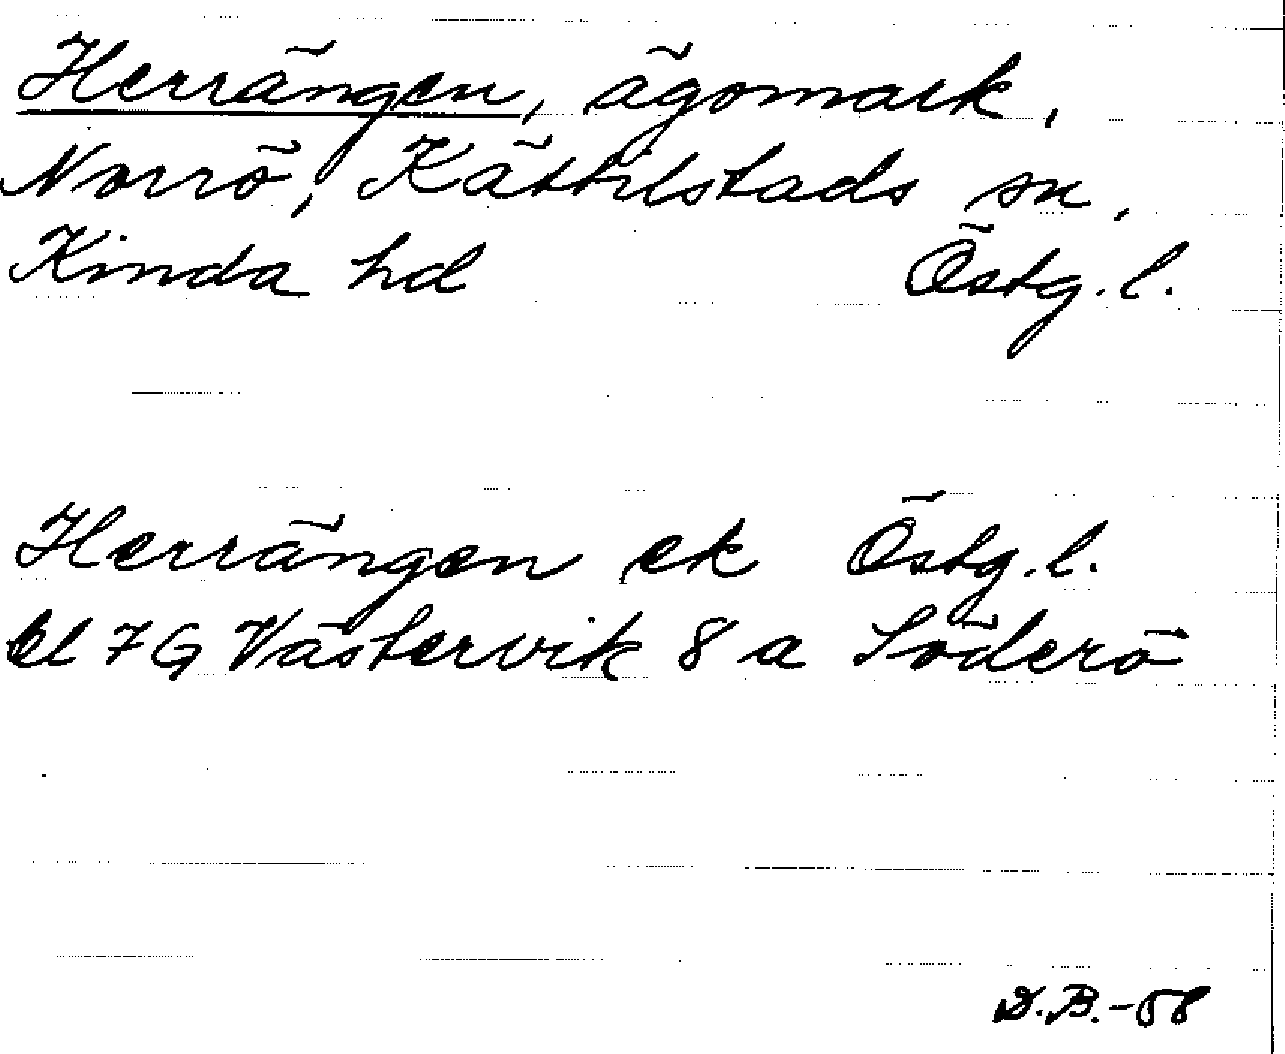 Herrängen, ägomark,
Norrö, Kättilstads sn,
Kinda hd Östg. l.
Herrängen ek Östg. l.
bl 7 G Västervik 8 a Söderö
D.B.-58